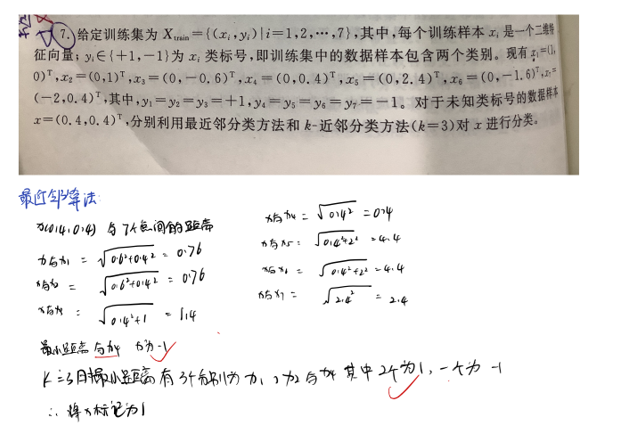 7. 给定训练集为 X_train={(x_i,y_i)|i=1,2,…,7},其中,每个训练样本 x_i 是一个二维特
征向量;y_i∈{+1,-1}为 x_i 类标号,即训练集中的数据样本包含两个类别。现有 x_1=(1,
0)^T,x_2=(0,1)^T,x_3=(0,-0.6)^T,x_4=(0,0.4)^T,x_5=(0,2.4)^T,x_6=(0,-1.6)^T,x_7=
(-2,0.4)^T,其中,y_1=y_2=y_3=+1,y_4=y_5=y_6=y_7=-1。对于未知类标号的数据样本
x=(0.4,0.4)^T,分别利用最近邻分类方法和 k-近邻分类方法(k=3)对 x 进行分类。
最近邻算法:
x(0.4,0.4) 与7个点间的距离
x与x1 = √0.6²+0.4² = 0.76
x与x2 = √0.6²+0.4² = 0.76
= √0.4²+1 = 1.4
x与x4 = √0.4² = 0.4
x与x5 = √0.4²+2² = 4.4
x与x6 = √0.4²+2² = 4.4
x与x7 = √2.4² = 2.4
最小距离 与x4 为-1
K=3时最小距离有3个分别为x1,x2与x4 其中2个为1,一个为 -1
∴ 将x标记为1